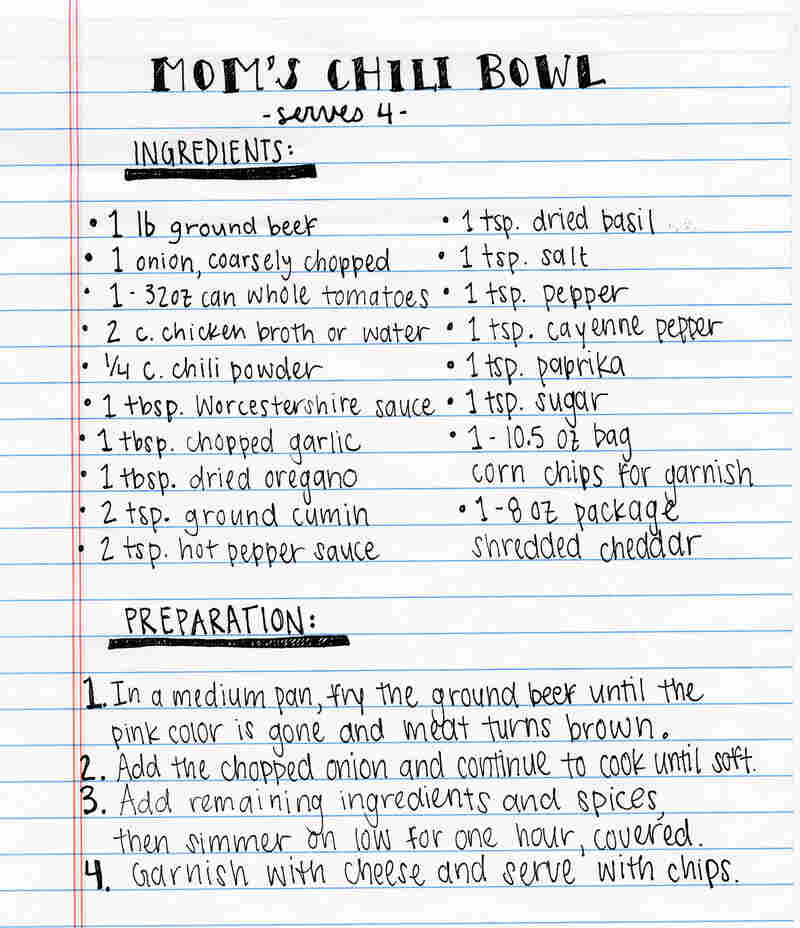 MOM'S CHILI BOWL
-serves 4-
INGREDIENTS:
• 1 lb ground beef
• 1 onion, coarsely chopped
• 1 - 32oz can whole tomatoes
• 2 c. chicken broth or water
• 1/4 c. chili powder
• 1 tbsp. Worcestershire sauce
• 1 tbsp. chopped garlic
• 1 tbsp. dried oregano
• 2 tsp. ground cumin
• 2 tsp. hot pepper sauce
• 1 tsp. dried basil
• 1 tsp. salt
• 1 tsp. pepper
• 1 tsp. cayenne pepper
• 1 tsp. paprika
• 1 tsp. sugar
• 1 - 10.5 oz bag
corn chips for garnish
• 1 - 8 oz package
shredded cheddar
PREPARATION:
1. In a medium pan, fry the ground beef until the
pink color is gone and meat turns brown.
2. Add the chopped onion and continue to cook until soft.
3. Add remaining ingredients and spices,
then simmer on low for one hour, covered.
4. Garnish with cheese and serve with chips.